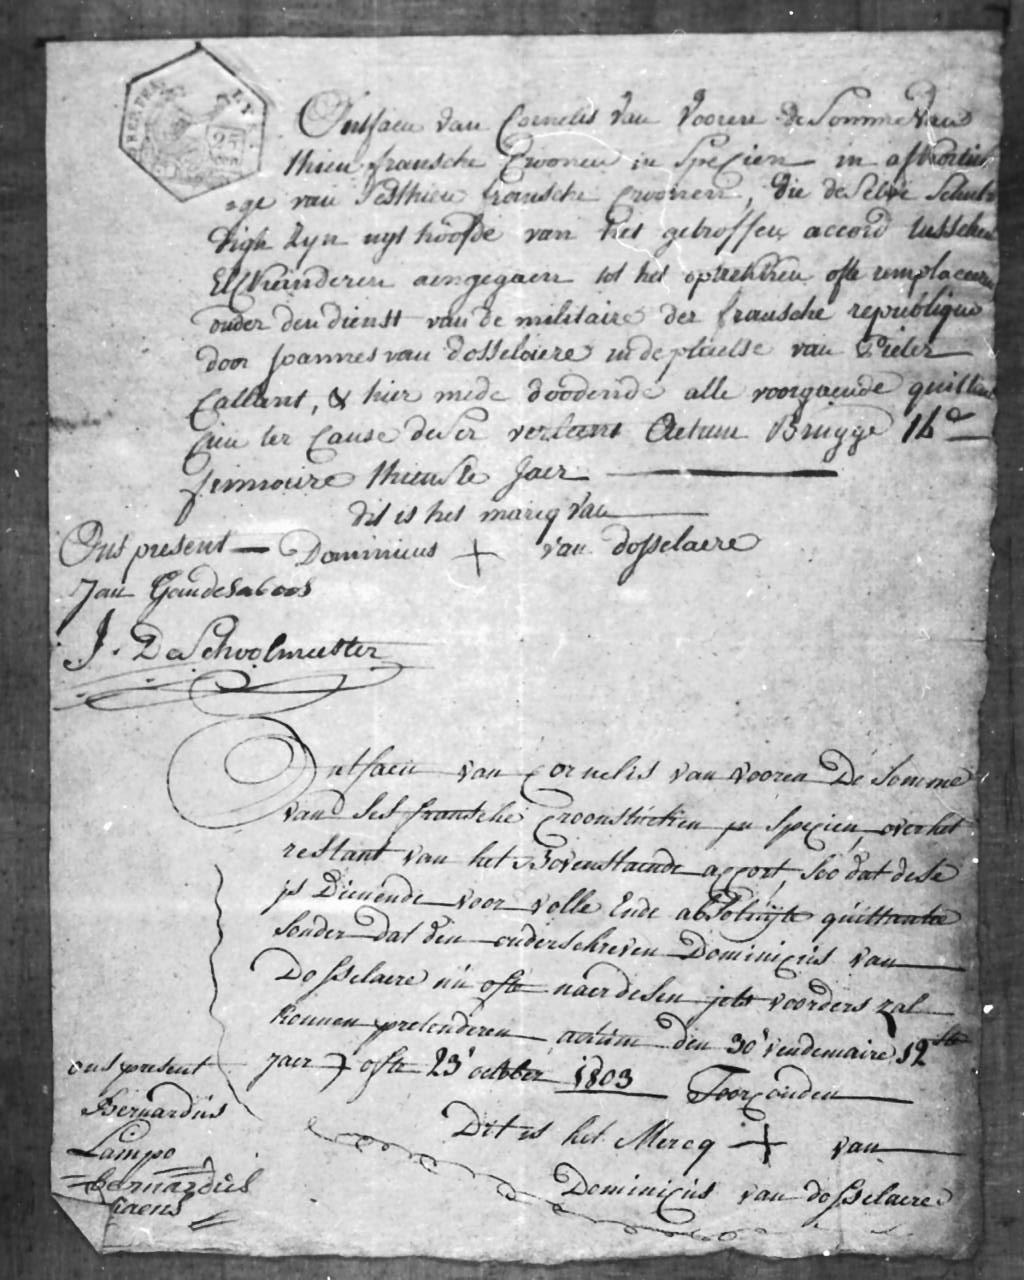 25
Ontfaen van Cornelis van Vooren de Somme van
thien fransche Croonen in Specien in afkortin
ge van Sesthien fransche Croonen, die deselve schul
digh zyn uyt hoofde van het getroffen accord tusschen
aengegaen tot het optrekken ofte remplaceren
onder den dienst van de militaire der fransche republique
door Joannes van dosselaere in de plaetse van Pieter
Callant, & hier mede doodende alle voorgaende quittan
cien ter Cause deser verleent Actum Brugge 14e
frimaire thienste Jaer
dit is het marcq van
Ons present Dominicus + van dosselaere
Jan
J. De Schoolmeester
Ontfaen van Cornelis van vooren De somme
van ses fransche Croonstucken in specien, over het
restant van het Bovenstaende accort, soo dat dese
is Dienende voor volle Ende absoluyte quittantie
sonder dat den onderschreven Dominicus van
Dosselaere nu ofte naer desen jets voorders zal
konnen pretenderen actum den 30e vendemaire 12ste
jaer ofte 23e october 1803 Toorconden
ons present
Bernardus
Lampo
Bernardus
Dit is het Mercq + van
Dominicus van dosselaere